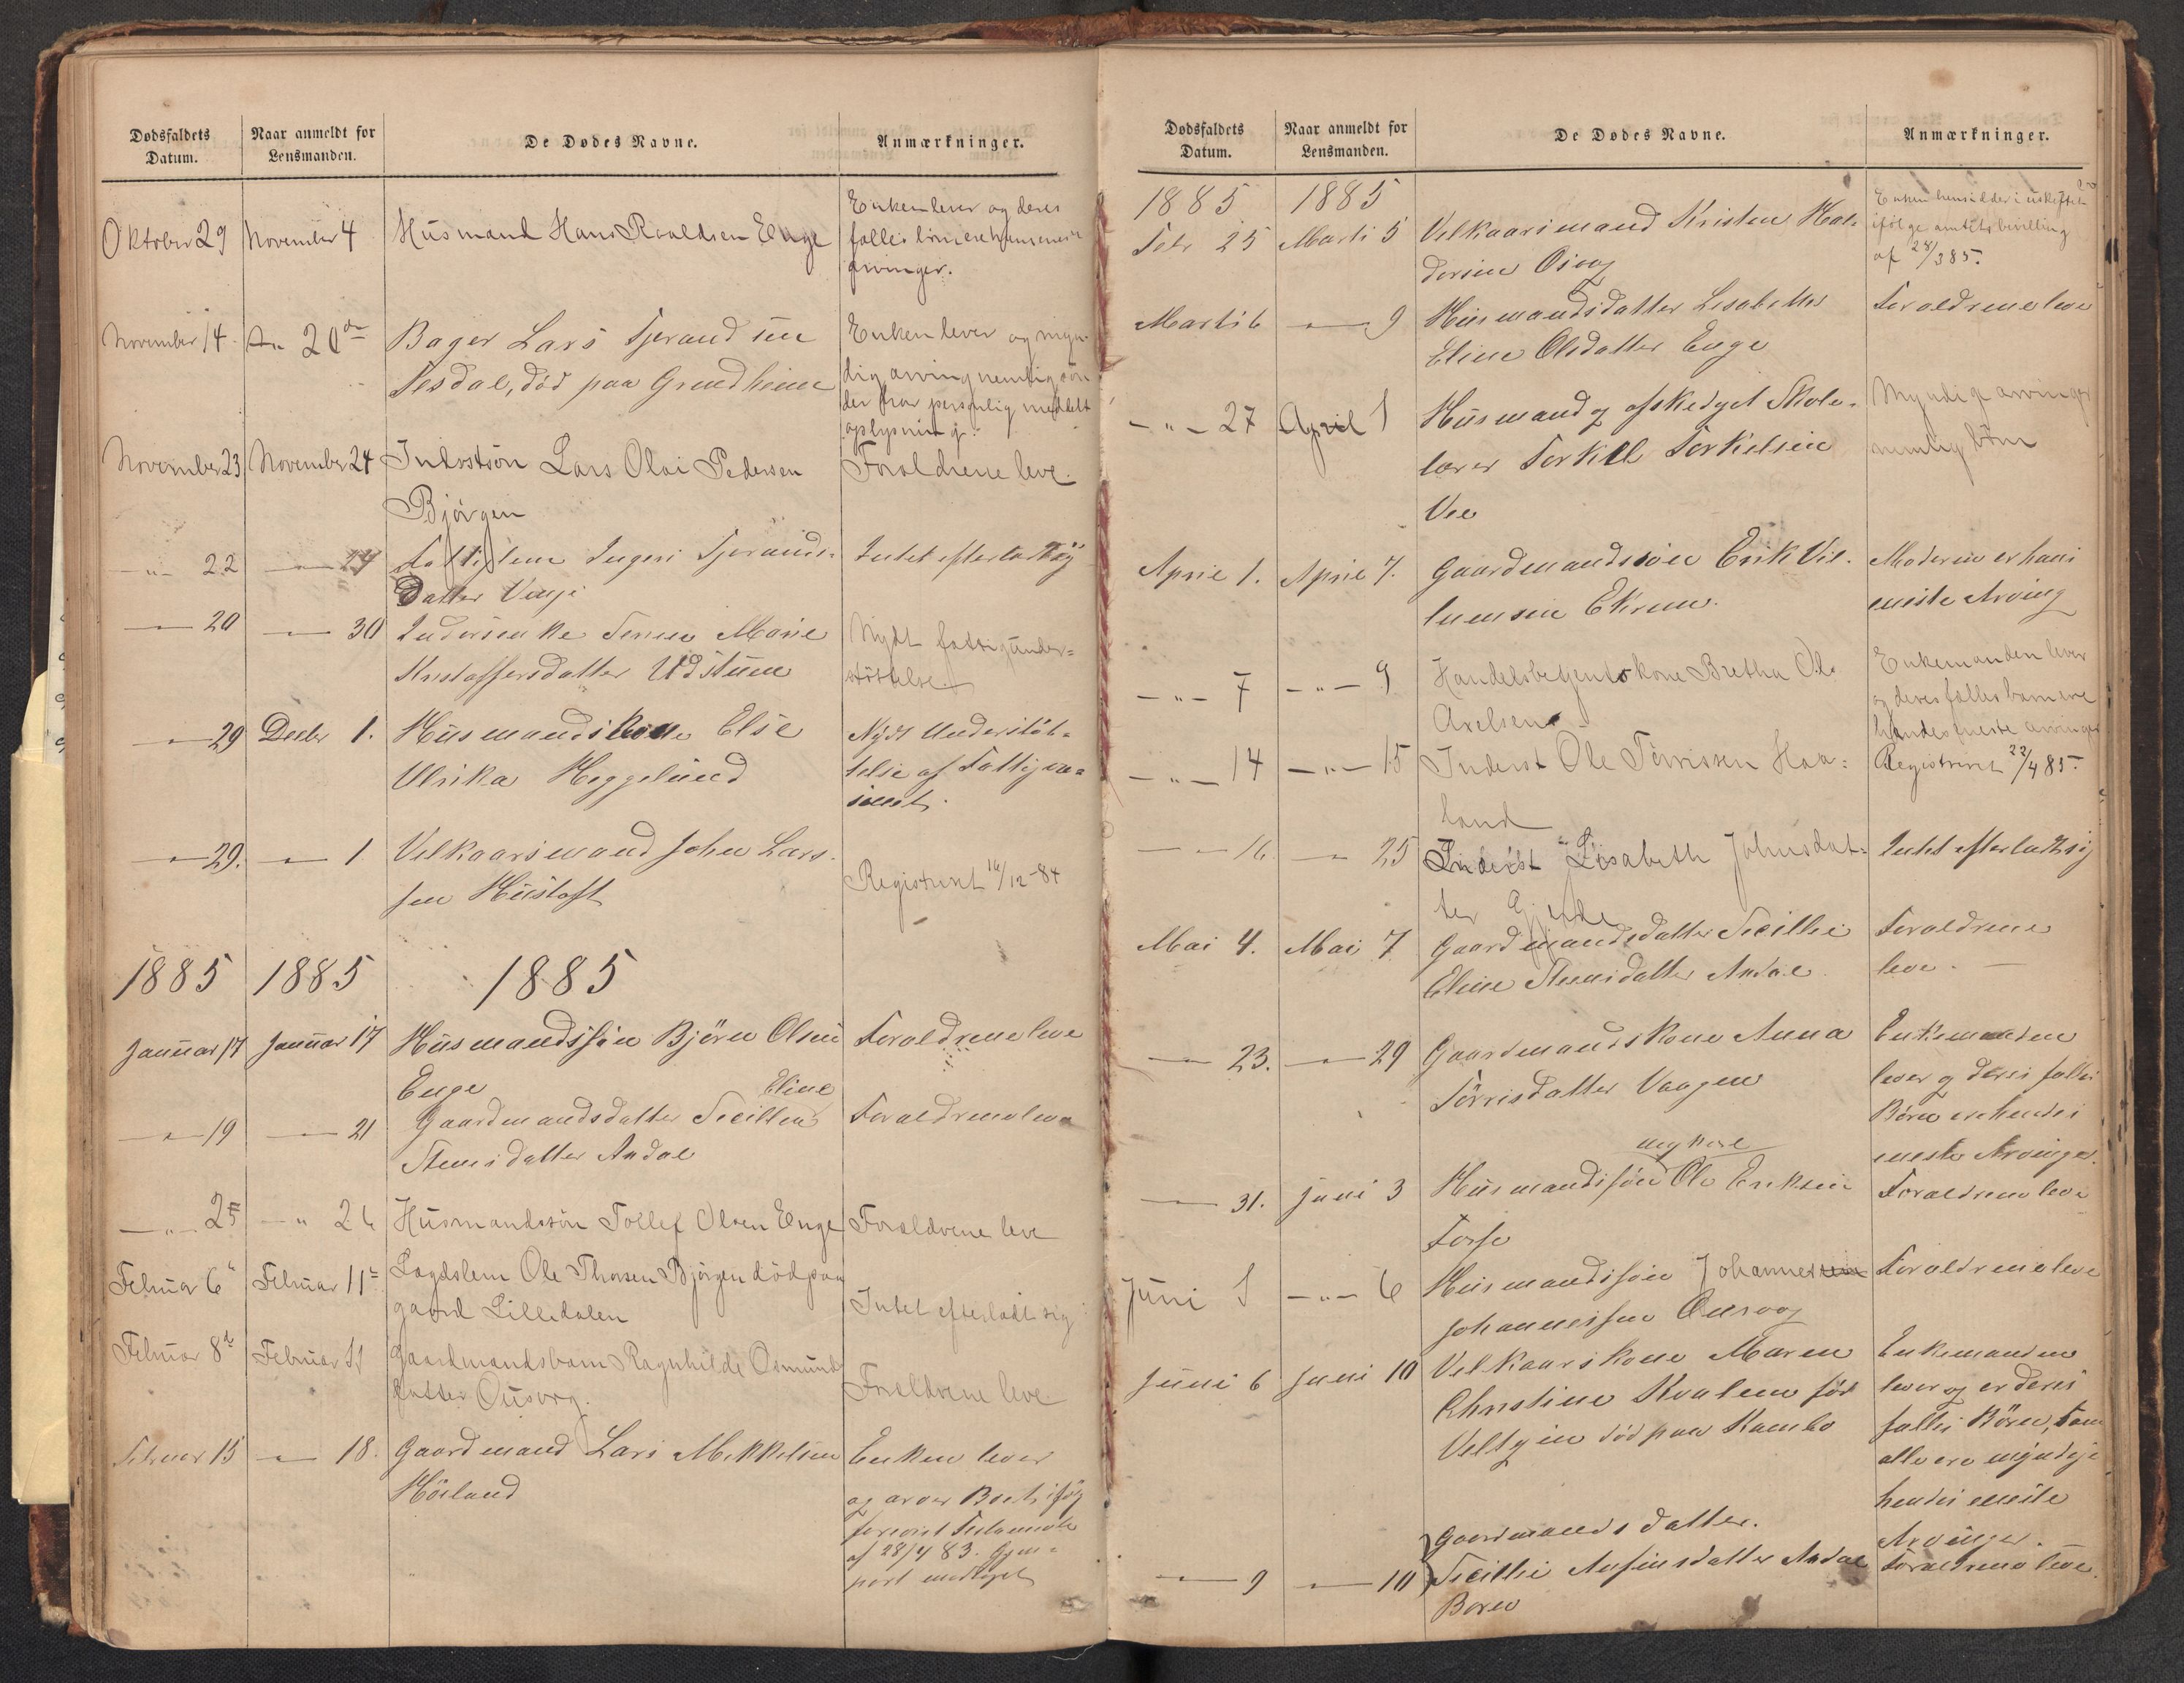 Dødsfaldets Datum.
Naar anmeldt for Lensmanden.
De Dødes Navne.
Anmærkninger.
Oktober 29 November 4 Husmand Hans Roaldsen Enge
Enken lever og deres
fælles børn ere hans eneste
arvinger.
November 14. 20de Bager Lars Tjerandsen
Sesdal, død paa Grudheim
Enken lever og myn-
dig arving nemlig søn
der har personlig meddelt
oplysning.
November 23 November 24 Inderstsøn Lars Olai Pedersen
Bjørgen
Forældrene leve.
—"— 22 —"— 24 Fattiglem Ingeri Tjerands-
Datter Venje
Intet efterladt sig
—"— 20 —"— 30 Marie
Kristoffersdatter Udstuen
Nydt fattigunder-
støttelse.
—"— 29 Decbr 1. Husmandskone Else
Ulrika Heggelund
Nydt Understøt-
telse af Fattigvæ-
senet.
—"— 29. —"— 1 Velkaarsmand John Lars-
sen Hustoft
Registreret 16/12-84
1885 1885 1885
Januar 17 Januar 17 Husmandssøn Bjørn Olsen
Enge
Forældrene leve
Eline
—"— 19 —"— 21 Gaardmandsdatter Sicillie
Stensdatter Andal
Forældrene leve
—"— 25 —"— 26 Husmandssøn Tollef Olsen Enge
Forældrene leve
Februar 6 Februar 11 Lægdslem Ole Thorsen Bjørgen død paa
gaard Lilledalen
Intet efterladt sig
Februar 8de Februar 11 Gaardmandsbarn Ragnhilde Osmunds
datter Ousvog.
Forældrene leve
Februar 15 —"— 18. Gaardmand Lars Mikkelsen
Høiland
Enken lever
og arver Boet ifølg
forevist Testamente
af 28/4 83.
Dødsfaldets Datum.
Naar anmeldt for Lensmanden.
De Dødes Navne.
Anmærkninger.
1885 1885
Febr 25 Marts 5 Velkaarsmand Kristen Hal-
dorsen Osvog
Enken hensidder i uskiftet bo
ifølge amtets bevilling
af 28/3 85.
Marts 6 —"— 9 Husmandsdatter Lisabeth
Eline Olsdatter Enge
Forældrene leve
—"— 27 April 1 Husmand og afskediget Skole-
lærer Torkel Torkelsen
Vee
Myndige arvinger
nemlig børn
April 1. April 7. Gaardmandssøn Erik Vil-
lumsen Ekrem.
Moderen er hans
eneste Arving
—"— 7 —"— 9 Handelsbetjentskone Bretha Ols
Axelsen
Enkemanden lever
og deres fælles barn ere
hendes eneste arvinger
—"— 14 —"— 15 Inderst Ole Tørrissen Haa-
land
Registreret 22/4 85.
—"— 16 —"— 25 Inderst Lisabeth Johnsdat-
ter Gjerde
Intet efterladt sig
Mai 4. Mai 7 Gaardmandsdatter Sicillie
Eline Stensdatter Andal
Forældrene
leve. —
—"— 23. —"— 29 Gaardmandskone Anna
Tørrisdatter Vaagen
Enkemanden
lever og deres fælles
Børn ere hendes
eneste Arvinger.
—"— 31. Juni 3 Husmandssøn Ole Eriksen
Torse
Forældrene leve
Juni 1 —"— 6 Husmandssøn Johannes
Johannessen Ousvog
Forældrene leve
Juni 6 Juni 10 Velkaarskone Maren
Christine Kvalem før
død paa
Enkemanden
lever og er deres
fælles Børn, som
alle ere myndige
hendes eneste
Arvinger.
Gaardmandsdatter.
—"— 9 —"— 10 Sicillie Ansinsdatter Andal
Boren
Forældrene leve.